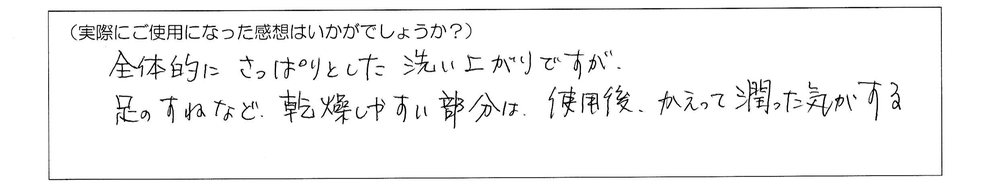 （実際にご使用になった感想はいかがでしょうか？）
全体的に さっぱりとした 洗い上がりですが、
足のすねなど、乾燥しやすい部分は、使用後、かえって潤った気がする